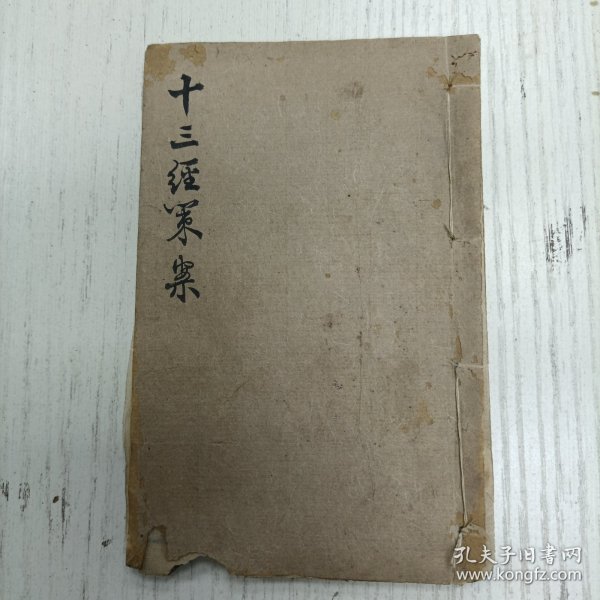 十三經策案
孔夫子旧书网
www.kongfz.com